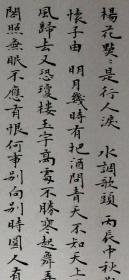 楊花點〻是行人淚　水調歌頭　丙辰中秋
懷子由　明月幾時有把酒問青天不知天上
風歸去又恐瓊樓玉宇高處不勝寒起舞弄
閣照無眠不應有恨何事別向別時圓人有